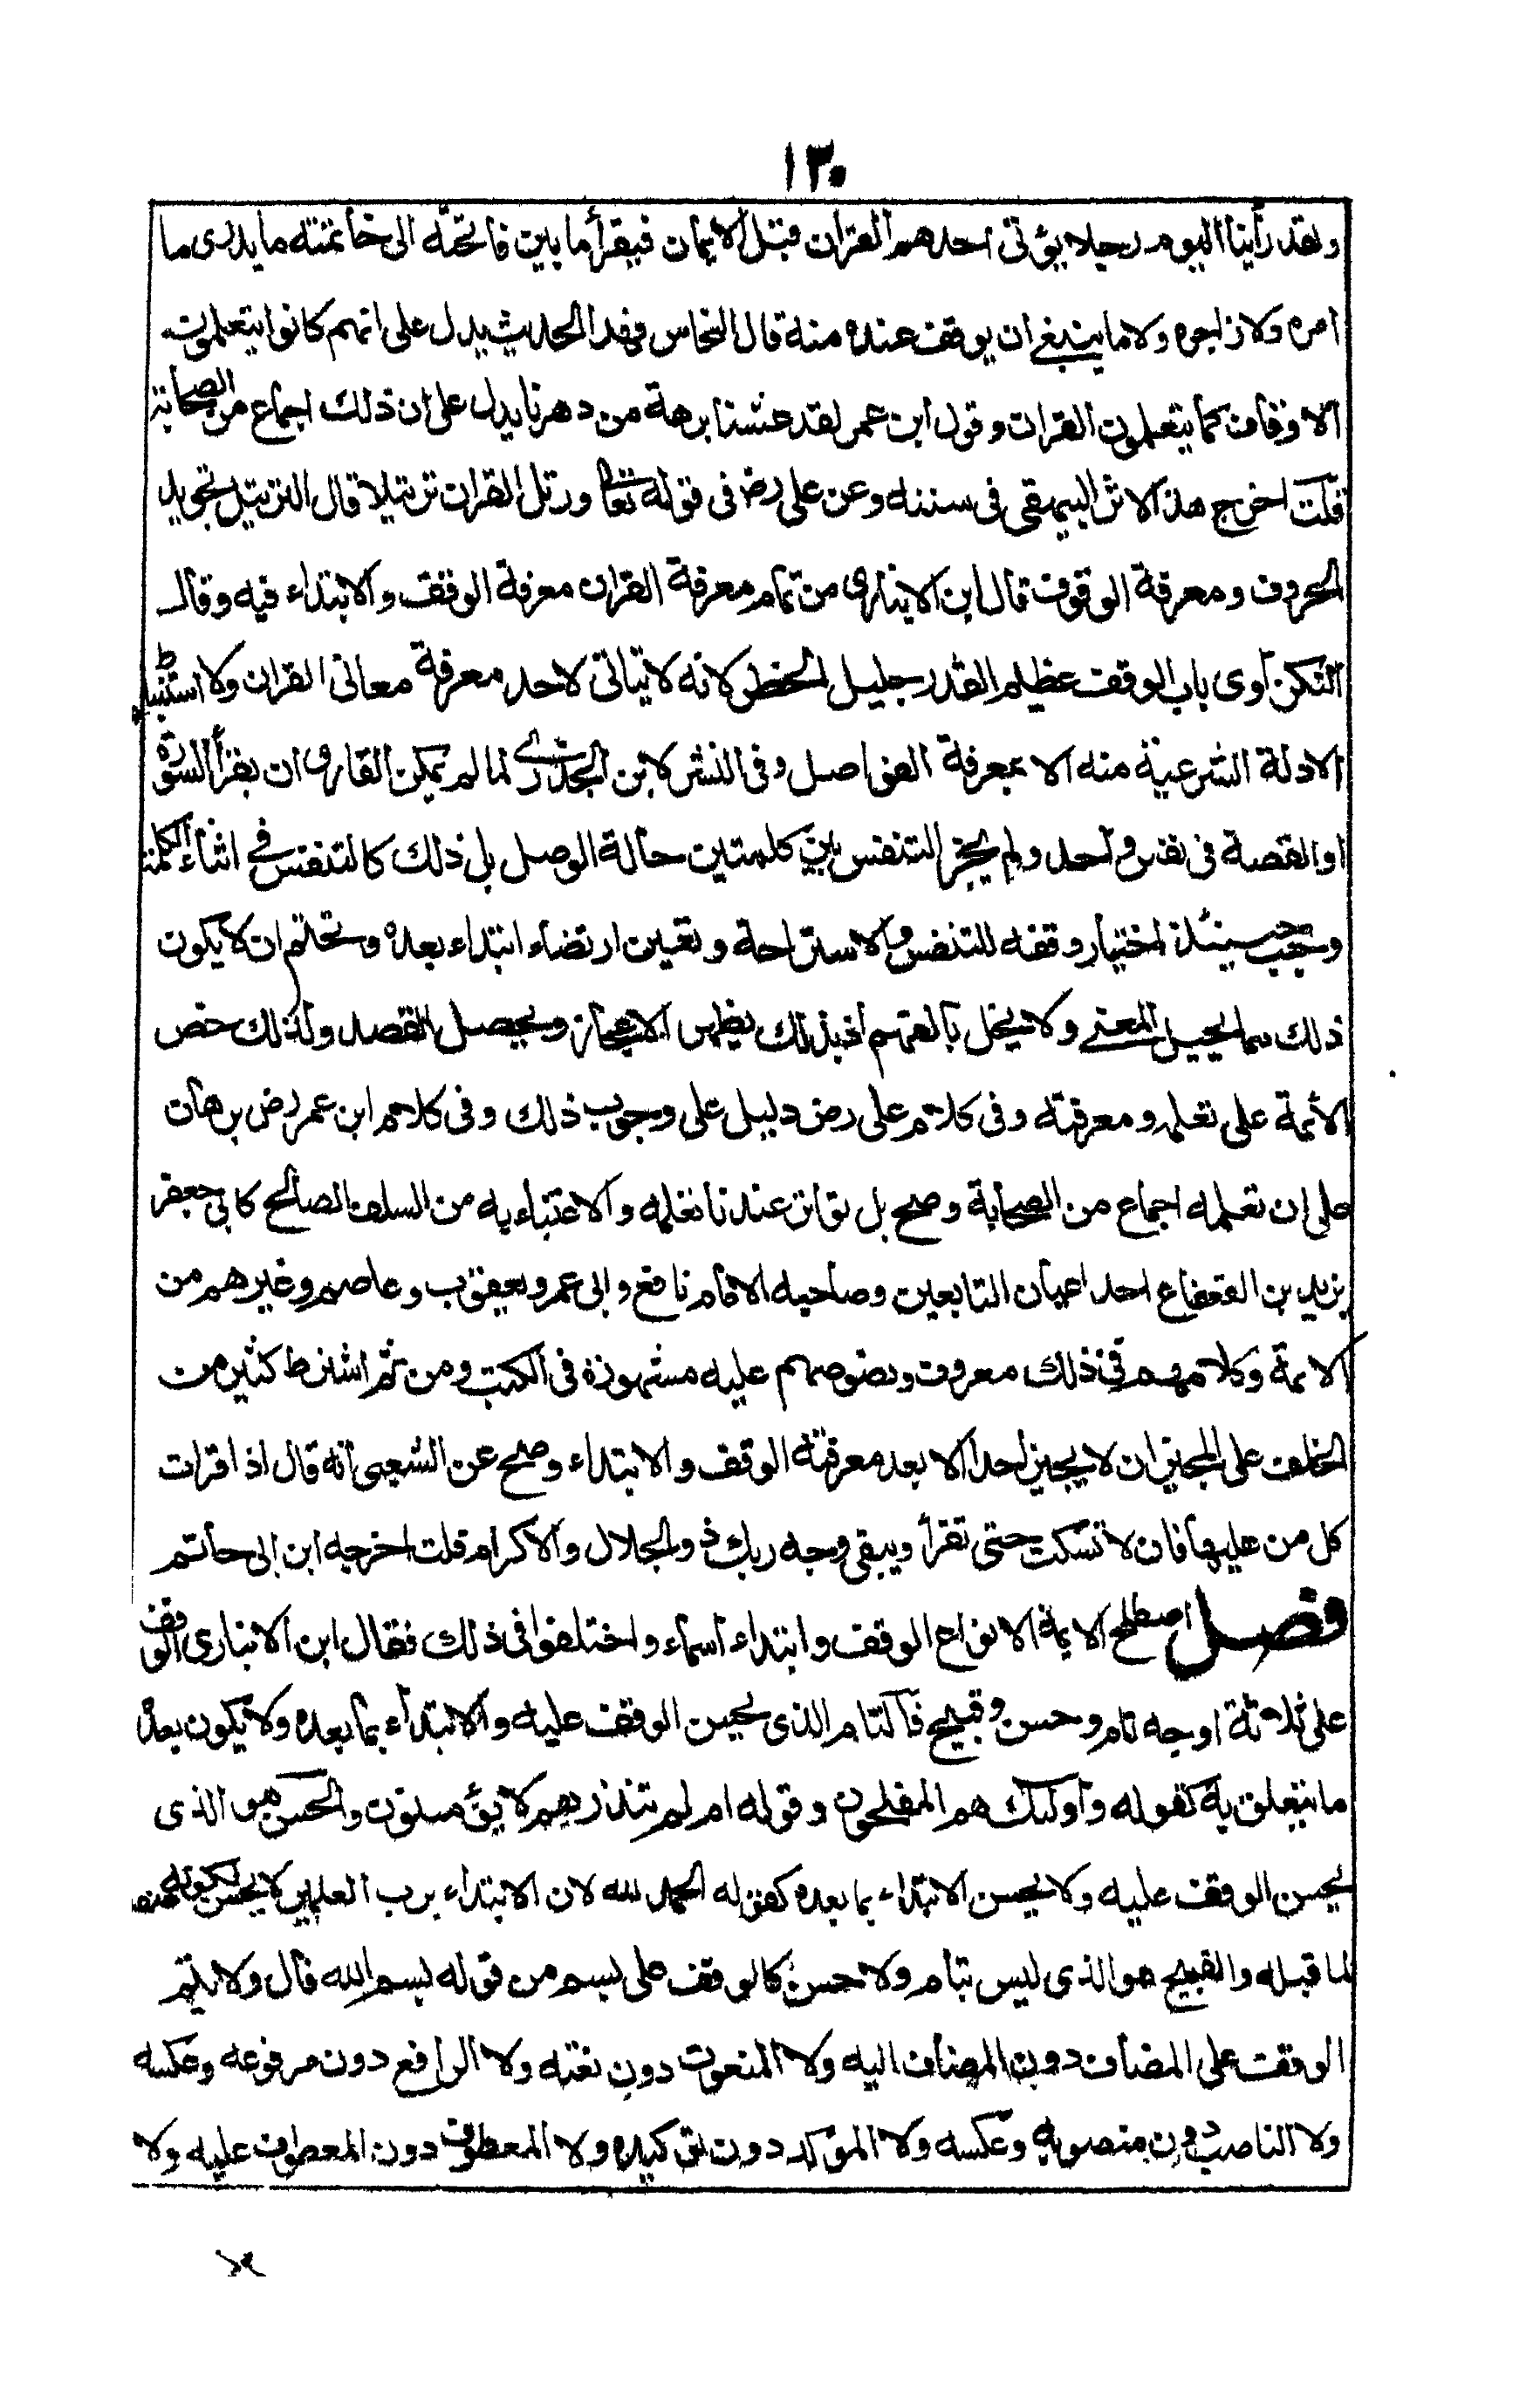 ١٣٠
ولقد رأينا اليوم رجلا يؤتى احدهم القران قبل الايمان فيقرأ ما بين فاتحته الى خاتمته ما يدرى ما
امره ولا زاجره ولا ما ينبغى ان يوقف عنده منه قال النحاس فهذا الحديث يدل على انهم كانوا يتعلمون
الاوقاف كما يتعلمون القران وقول ابن عمر لقد عشنا برهة من دهرنا يدل على ان ذلك اجماع من الصحابة
قلت اخرج هذا الاثر البيهقى فى سننه وعن على رض فى قوله تعالى ورتل القران ترتيلا قال الترتيل تجويد
الحروف ومعرفة الوقوف قال ابن الانبارى من تمام معرفة القران معرفة الوقف والابتداء فيه وقال
النكزاوى باب الوقف عظيم القدر جليل الخطر لانه لا يتاتى لاحد معرفة معانى القران ولا استنباط
الادلة الشرعية منه الا بمعرفة الفواصل وفى النشر لابن الجزرى لما لم يمكن القارى ان يقرأ السورة
او القصة فى نفس واحد ولم يجز التنفس بين كلمتين حالة الوصل بل ذلك كالتنفس فى اثناء الكلمة
وجب حينئذ اختيار وقفه للتنفس والاستراحة وتعين ارتضاء ابتداء بعده وتحتم ان لا يكون
ذلك مما يحيل المعنى ولا يخل بالفهم اذ بذلك يظهر الاعجاز ويحصل القصد ولذلك حض
الأئمة على تعلمه ومعرفته وفى كلام على رض دليل على وجوب ذلك وفى كلام ابن عمر رض برهان
على ان تعلمه اجماع من الصحابة وصح بل تواتر عندنا تعلمه والاعتناء به من السلف الصالح كابى جعفر
يزيد بن القعقاع احد اعيان التابعين وصاحبه الامام نافع وابى عمرو ويعقوب وعاصم وغيرهم من
الائمة وكلامهم فى ذلك معروف ونصوصهم عليه مشهورة فى الكتب ومن ثم اشترط كثير من
الخلف على المجيز ان لا يجيز احدا الا بعد معرفته الوقف والابتداء وصح عن الشعبى انه قال اذا قرات
كل من عليها فان لا تسكت حتى تقرأ ويبقى وجه ربك ذو الجلال والاكرام قلت اخرجه ابن ابى حاتم
فصل اصطلح الايمة الانواع الوقف وابتداء اسماء واختلفوا فى ذلك فقال ابن الانبارى الوقف
على ثلاثة اوجه تام وحسن وقبيح فالتام الذى يحسن الوقف عليه والابتداء بما بعده ولا يكون بعده
ما يتعلق به كقوله واولئك هم المفلحون وقوله ام لم تنذرهم لا يؤمنون والحسن هو الذى
يحسن الوقف عليه ولا يحسن الابتداء بما بعده كقوله الحمد لله لان الابتداء برب العلمين لا يحسن لكونه صفة
لما قبله والقبيح هو الذى ليس بتام ولا حسن كالوقف على بسم من قوله بسم الله قال ولا يتم
الوقف على المضاف دون المضاف اليه ولا المنعوت دون نعته ولا الرافع دون مرفوعه وعكسه
ولا الناصب دون منصوبه وعكسه ولا المؤكد دون توكيده ولا المعطوف دون المعطوف عليه ولا